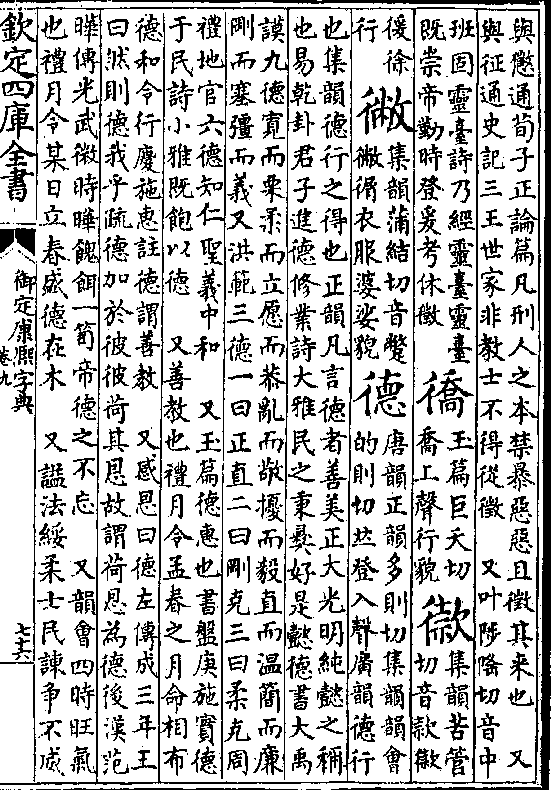 與懲通荀子正論篇凡刑人之本禁暴惡惡且徵其未也　又
與征通史記三王世家非教士不得從徵　又叶陟隆切音中
班固靈臺詩乃經靈臺靈臺
既崇帝勤時登爰考休徵
僑
玉篇巨夭切
喬上聲行貌
𢕟
集韻苦管
切音款𢕟
㣪徐
行
徶
集韻蒲結切音蹩
徶㣯衣服婆娑貌
德
唐韻正韻多則切集韻韻會
的則切𠀤登入聲廣韻德行
也集韻德行之得也正韻凡言德者善美正大光明純懿之稱
也易乾卦君子進德修業詩大雅民之秉彝好是懿德書大禹
謨九德寬而栗柔而立愿而恭亂而敬擾而毅直而温簡而廉
剛而塞彊而義又洪範三德一曰正直二曰剛克三曰柔克周
禮地官六德知仁聖義中和　又玉篇德惠也書盤庚施實德
于民詩小雅既飽以德　又善教也禮月令孟春之月命相布
德和令行慶施惠註德謂善教　又感恩曰德左傳成三年王
曰然則德我乎疏德加於彼彼荷其恩故謂荷恩為德後漢范
曄傳光武微時曄餽餌一笥帝德之不忘　又韻會四時旺氣
也禮月令某日立春盛德在木　又諡法綏柔士民諫争不威
欽定四庫全書
御定康熙字典
卷九
七六